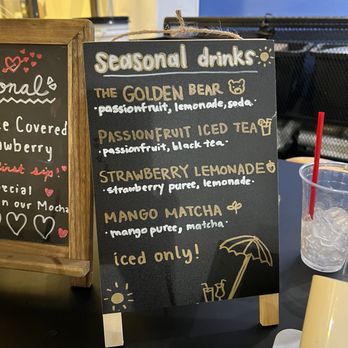 onal
e Covered
rawberry
first sip"
pecial
n our Mocha
seasonal drinks
THE GOLDEN BEAR
• passionfruit, lemonade, soda.
PASSIONFRUIT ICED TEA
• passionfruit, black tea.
STRAWBERRY LEMONADE
• strawberry puree, lemonade.
MANGO MATCHA
• mango puree, matcha.
iced only!